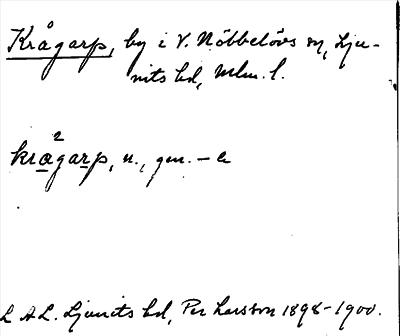 Krågarp, by i V. Nöbbelövs sn, Lju-
nits hd, Mlm. l.
krågarp, n., gen. – e
L A L. Ljunits hd, Per Larsson 1898–1900.